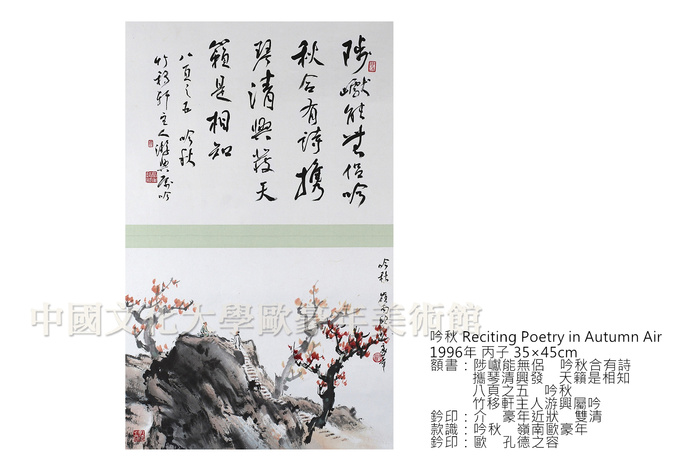 陟巘能無侶吟
秋合有詩攜
琴清興發天
籟是相知
八頁之五 吟秋
竹移軒主人游興屬吟
吟秋 嶺南歐豪年
中國文化大學歐豪年美術館
吟秋 Reciting Poetry in Autumn Air
1996年 丙子 35×45cm
額書：陟巘能無侶 吟秋合有詩
攜琴清興發 天籟是相知
八頁之五 吟秋
竹移軒主人游興屬吟
鈐印：介 豪年近狀 雙清
款識：吟秋 嶺南歐豪年
鈐印：歐 孔德之容